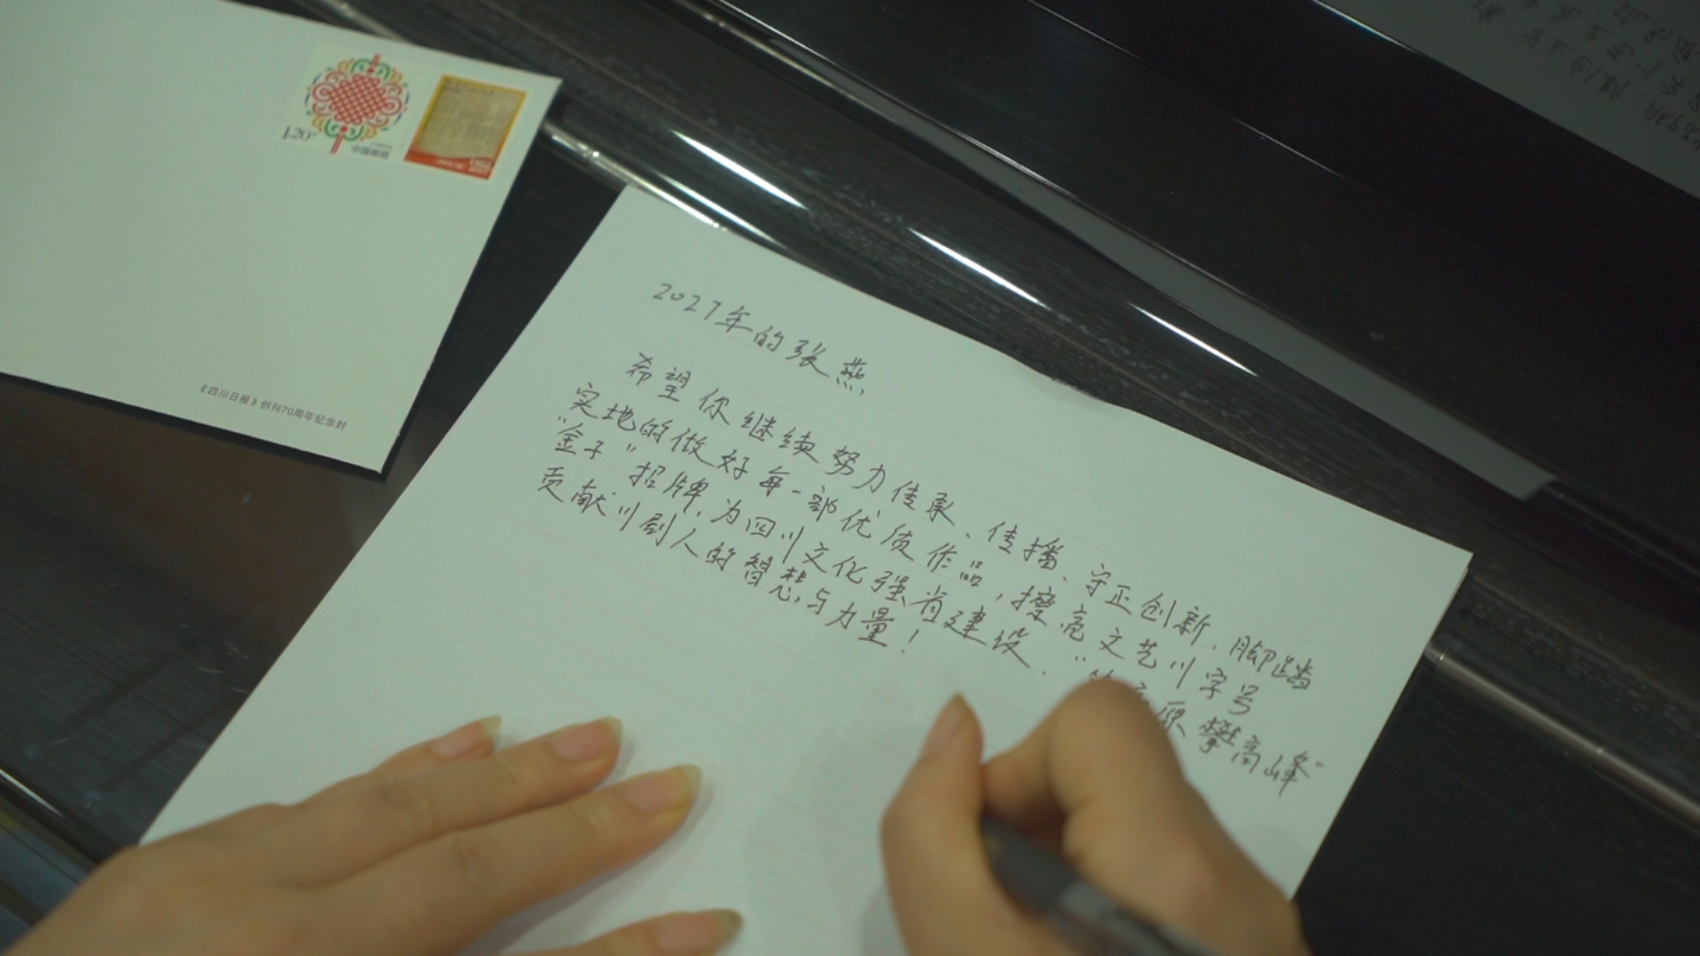 1.20元
中国邮政
《四川日报》创刊70周年纪念封
2027年的张燕
希望你继续努力传承、传播、守正创新、脚踏
实地的做好每一部优质作品,擦亮文艺川字号
“金子”招牌,为四川文化强省建设、“原攀高峰”
贡献川剧人的智慧与力量!